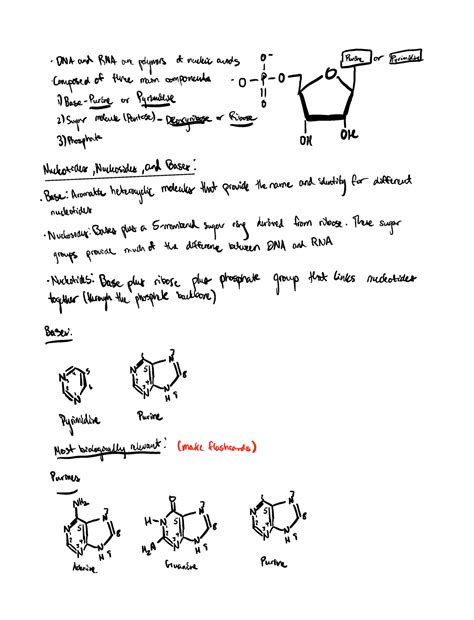 · DNA and RNA are polymers of nucleic acids
· Composed of three main components
1) Base - Purine or Pyrimidine
2) Sugar molecule (Pentose) - Deoxyribose or Ribose
3) Phosphate
O⁻
⁻O-P-O
O
O
Purine or Pyrimidine
OH OH
Nucleotides, Nucleosides, and Bases:
· Base: Aromatic heterocyclic molecules that provide the name and identity for different
nucleotides
· Nucleosides: Bases plus a 5-membered sugar ring derived from ribose. These sugar
groups provide much of the difference between DNA and RNA
· Nucleotides: Base plus ribose plus phosphate group that links nucleotides
together (through the phosphate backbone)
Bases:
N N 5 6
N N 5 N 7 8 N H 9
Pyrimidine Purine
Most biologically relevant: (make flashcards)
Purines
NH₂ O
N N 5 N 7 8 N H 9
H-N 5 N 7 8 H₂N N N H 9
N N 5 N 7 8 N H 9
Adenine Guanine Purine